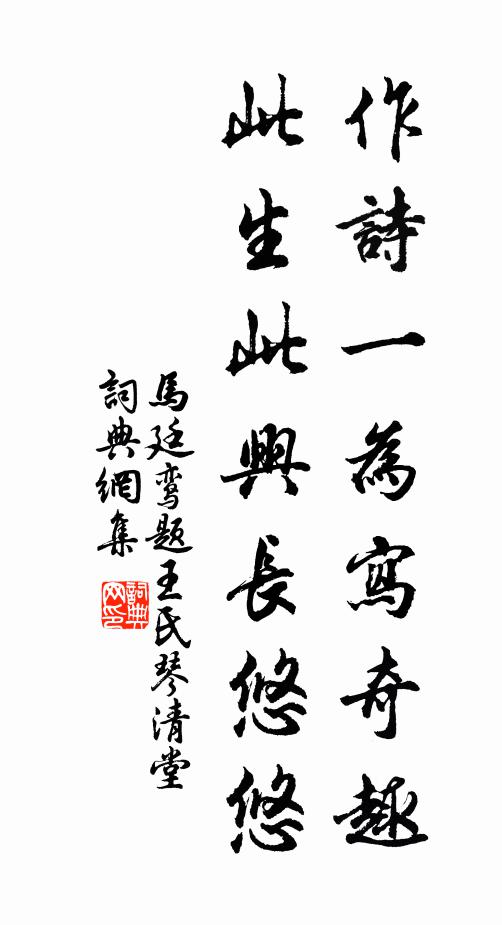 作詩一為寫奇趣
此生此興長悠悠
馬廷鸾題王氏琴清堂
詞典網集
詞典網印